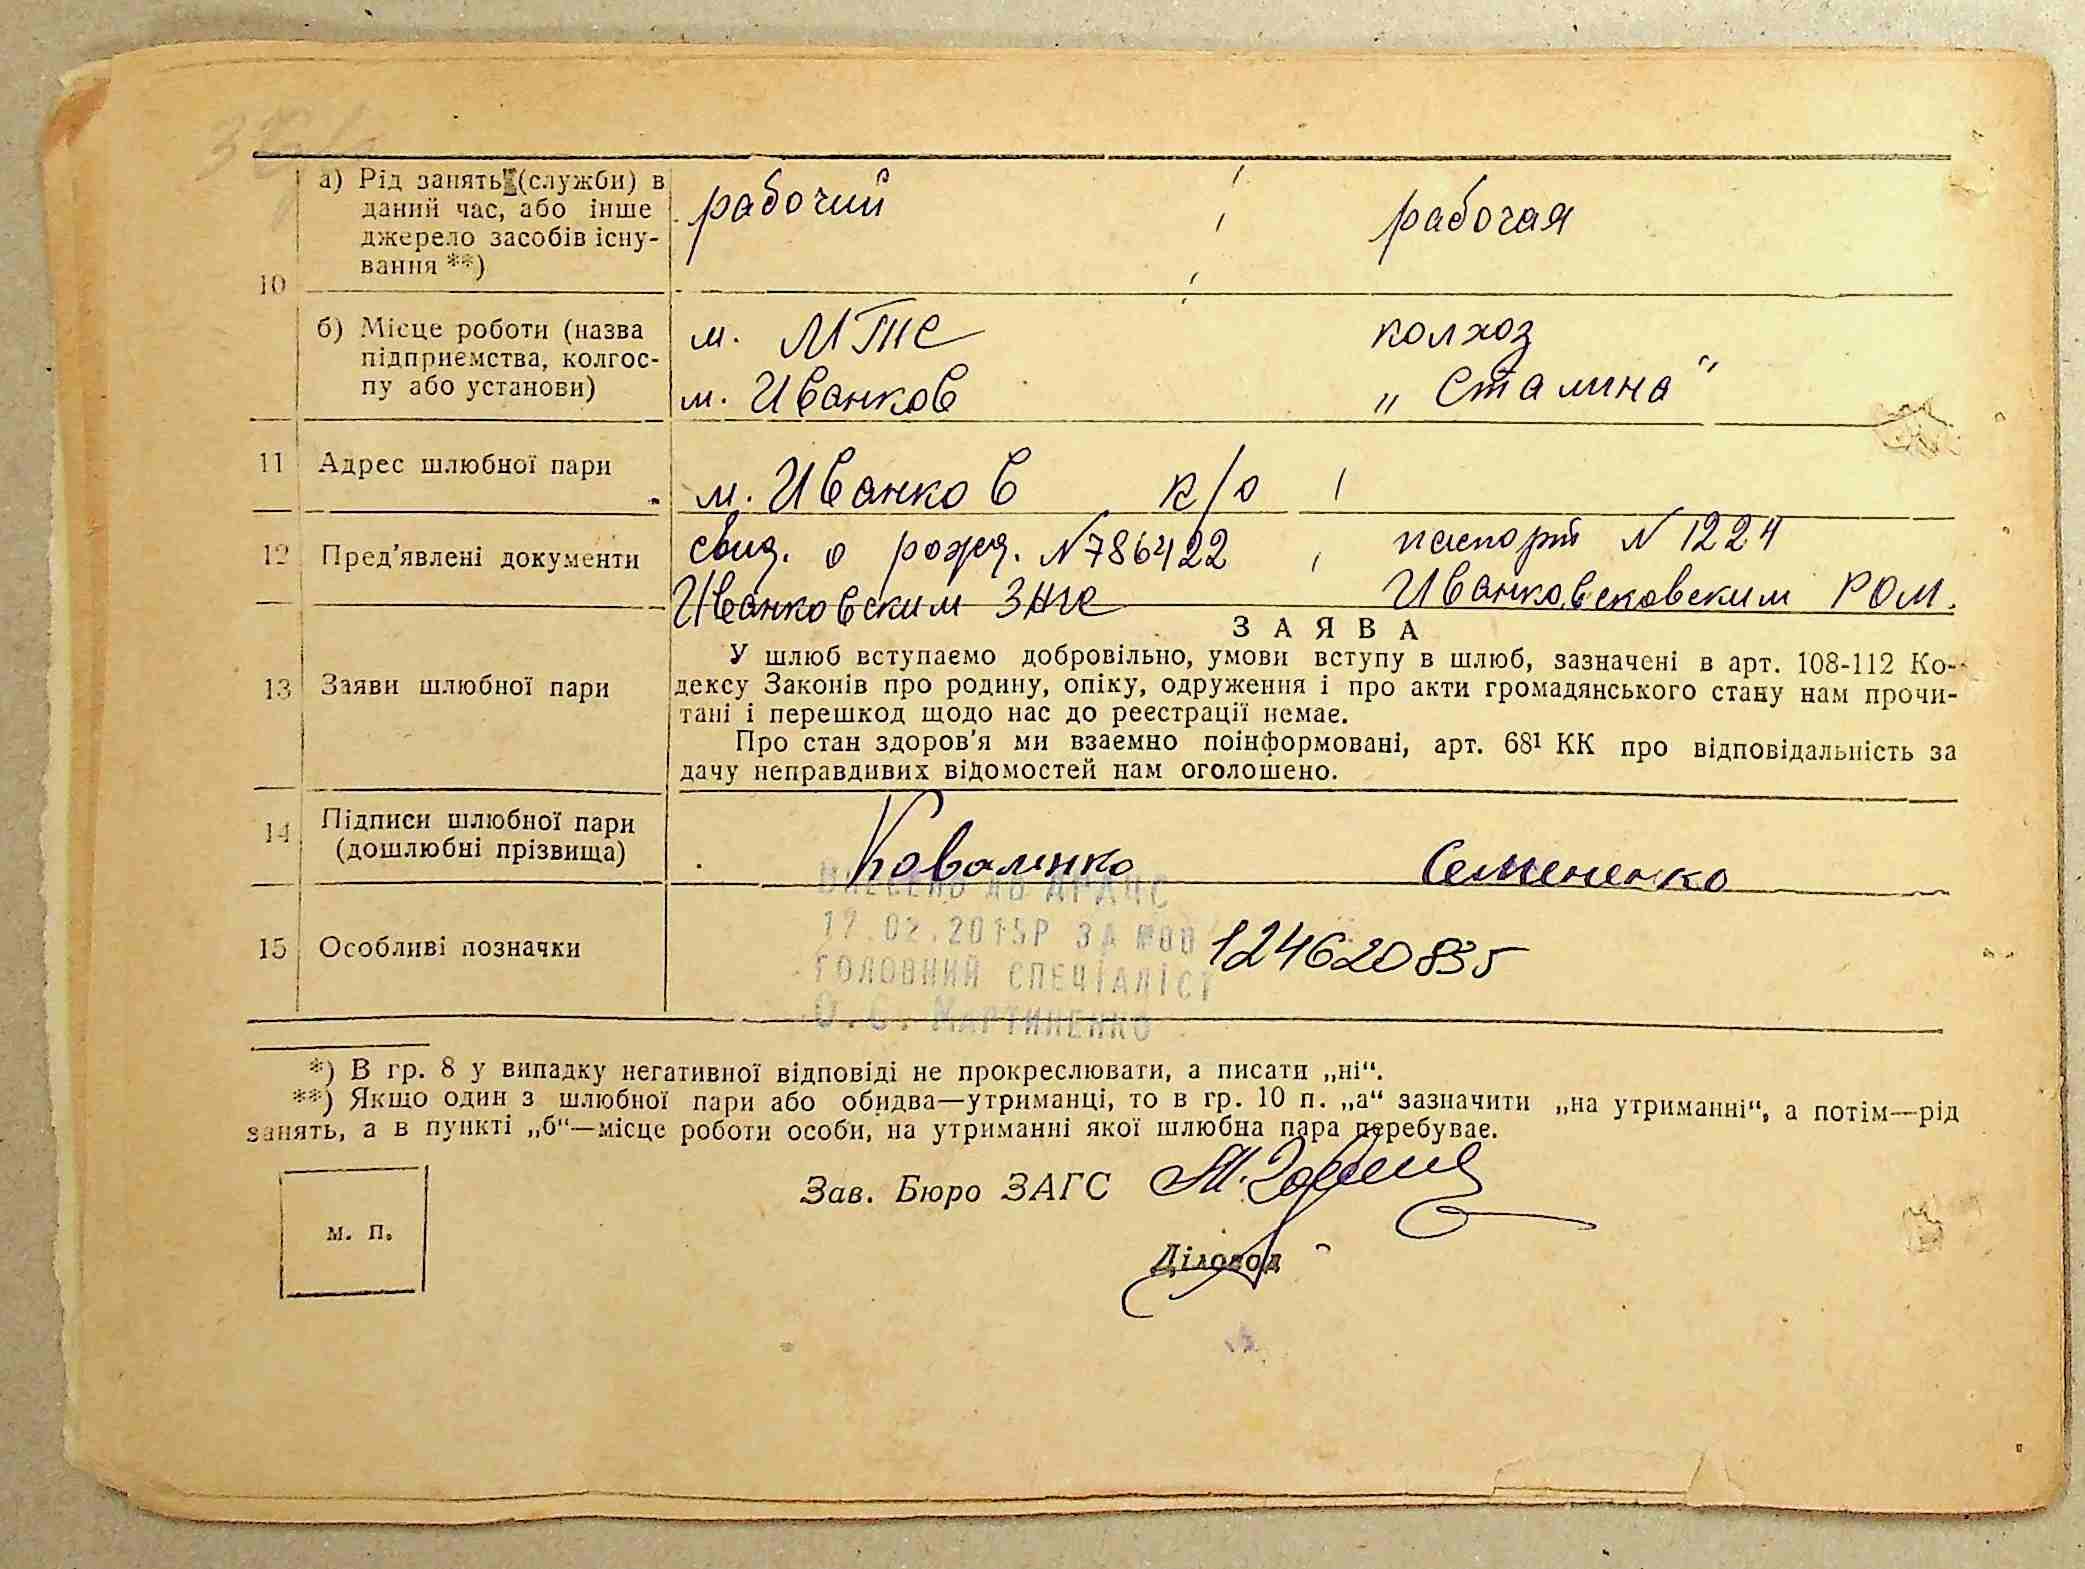 а) Рід занять (служби) в
даний час, або інше
джерело засобів існу-
вання **)
рабочий
рабочая
10
б) Місце роботи (назва
підприємства, колгос-
пу або установи)
м. МТС
м. Иванков
колхоз
„Сталина"
11 Адрес шлюбної пари
м. Иванков к/о
12 Пред'явлені документи
свид. о рожд. N786422
Иванковским
паспорт N 1224
РОМ.
13 Заяви шлюбної пари
ЗАЯВА
У шлюб вступаємо добровільно, умови вступу в шлюб, зазначені в арт. 108-112 Ко-
дексу Законів про родину, опіку, одруження і про акти громадянського стану нам прочи-
тані і перешкод щодо нас до реєстрації немає.
Про стан здоров'я ми взаємно поінформовані, арт. 68¹ КК про відповідальність за
дачу неправдивих відомостей нам оголошено.
14 Підписи шлюбної пари
(дошлюбні прізвища)
Коваленко
Семененко
15 Особливі позначки
ВНЕСЕНО ДО ДРАЦС
17.02.2015Р ЗА №00124620835
ГОЛОВНИЙ СПЕЦІАЛІСТ
О.С. МАРТИНЕНКО
*) В гр. 8 у випадку негативної відповіді не прокреслювати, а писати „ні“.
**) Якщо один з шлюбної пари або обидва—утриманці, то в гр. 10 п. „а“ зазначити „на утриманні“, а потім—рід
занять, а в пункті „б“—місце роботи особи, на утриманні якої шлюбна пара перебуває.
Зав. Бюро ЗАГС
м. п.
Діловод